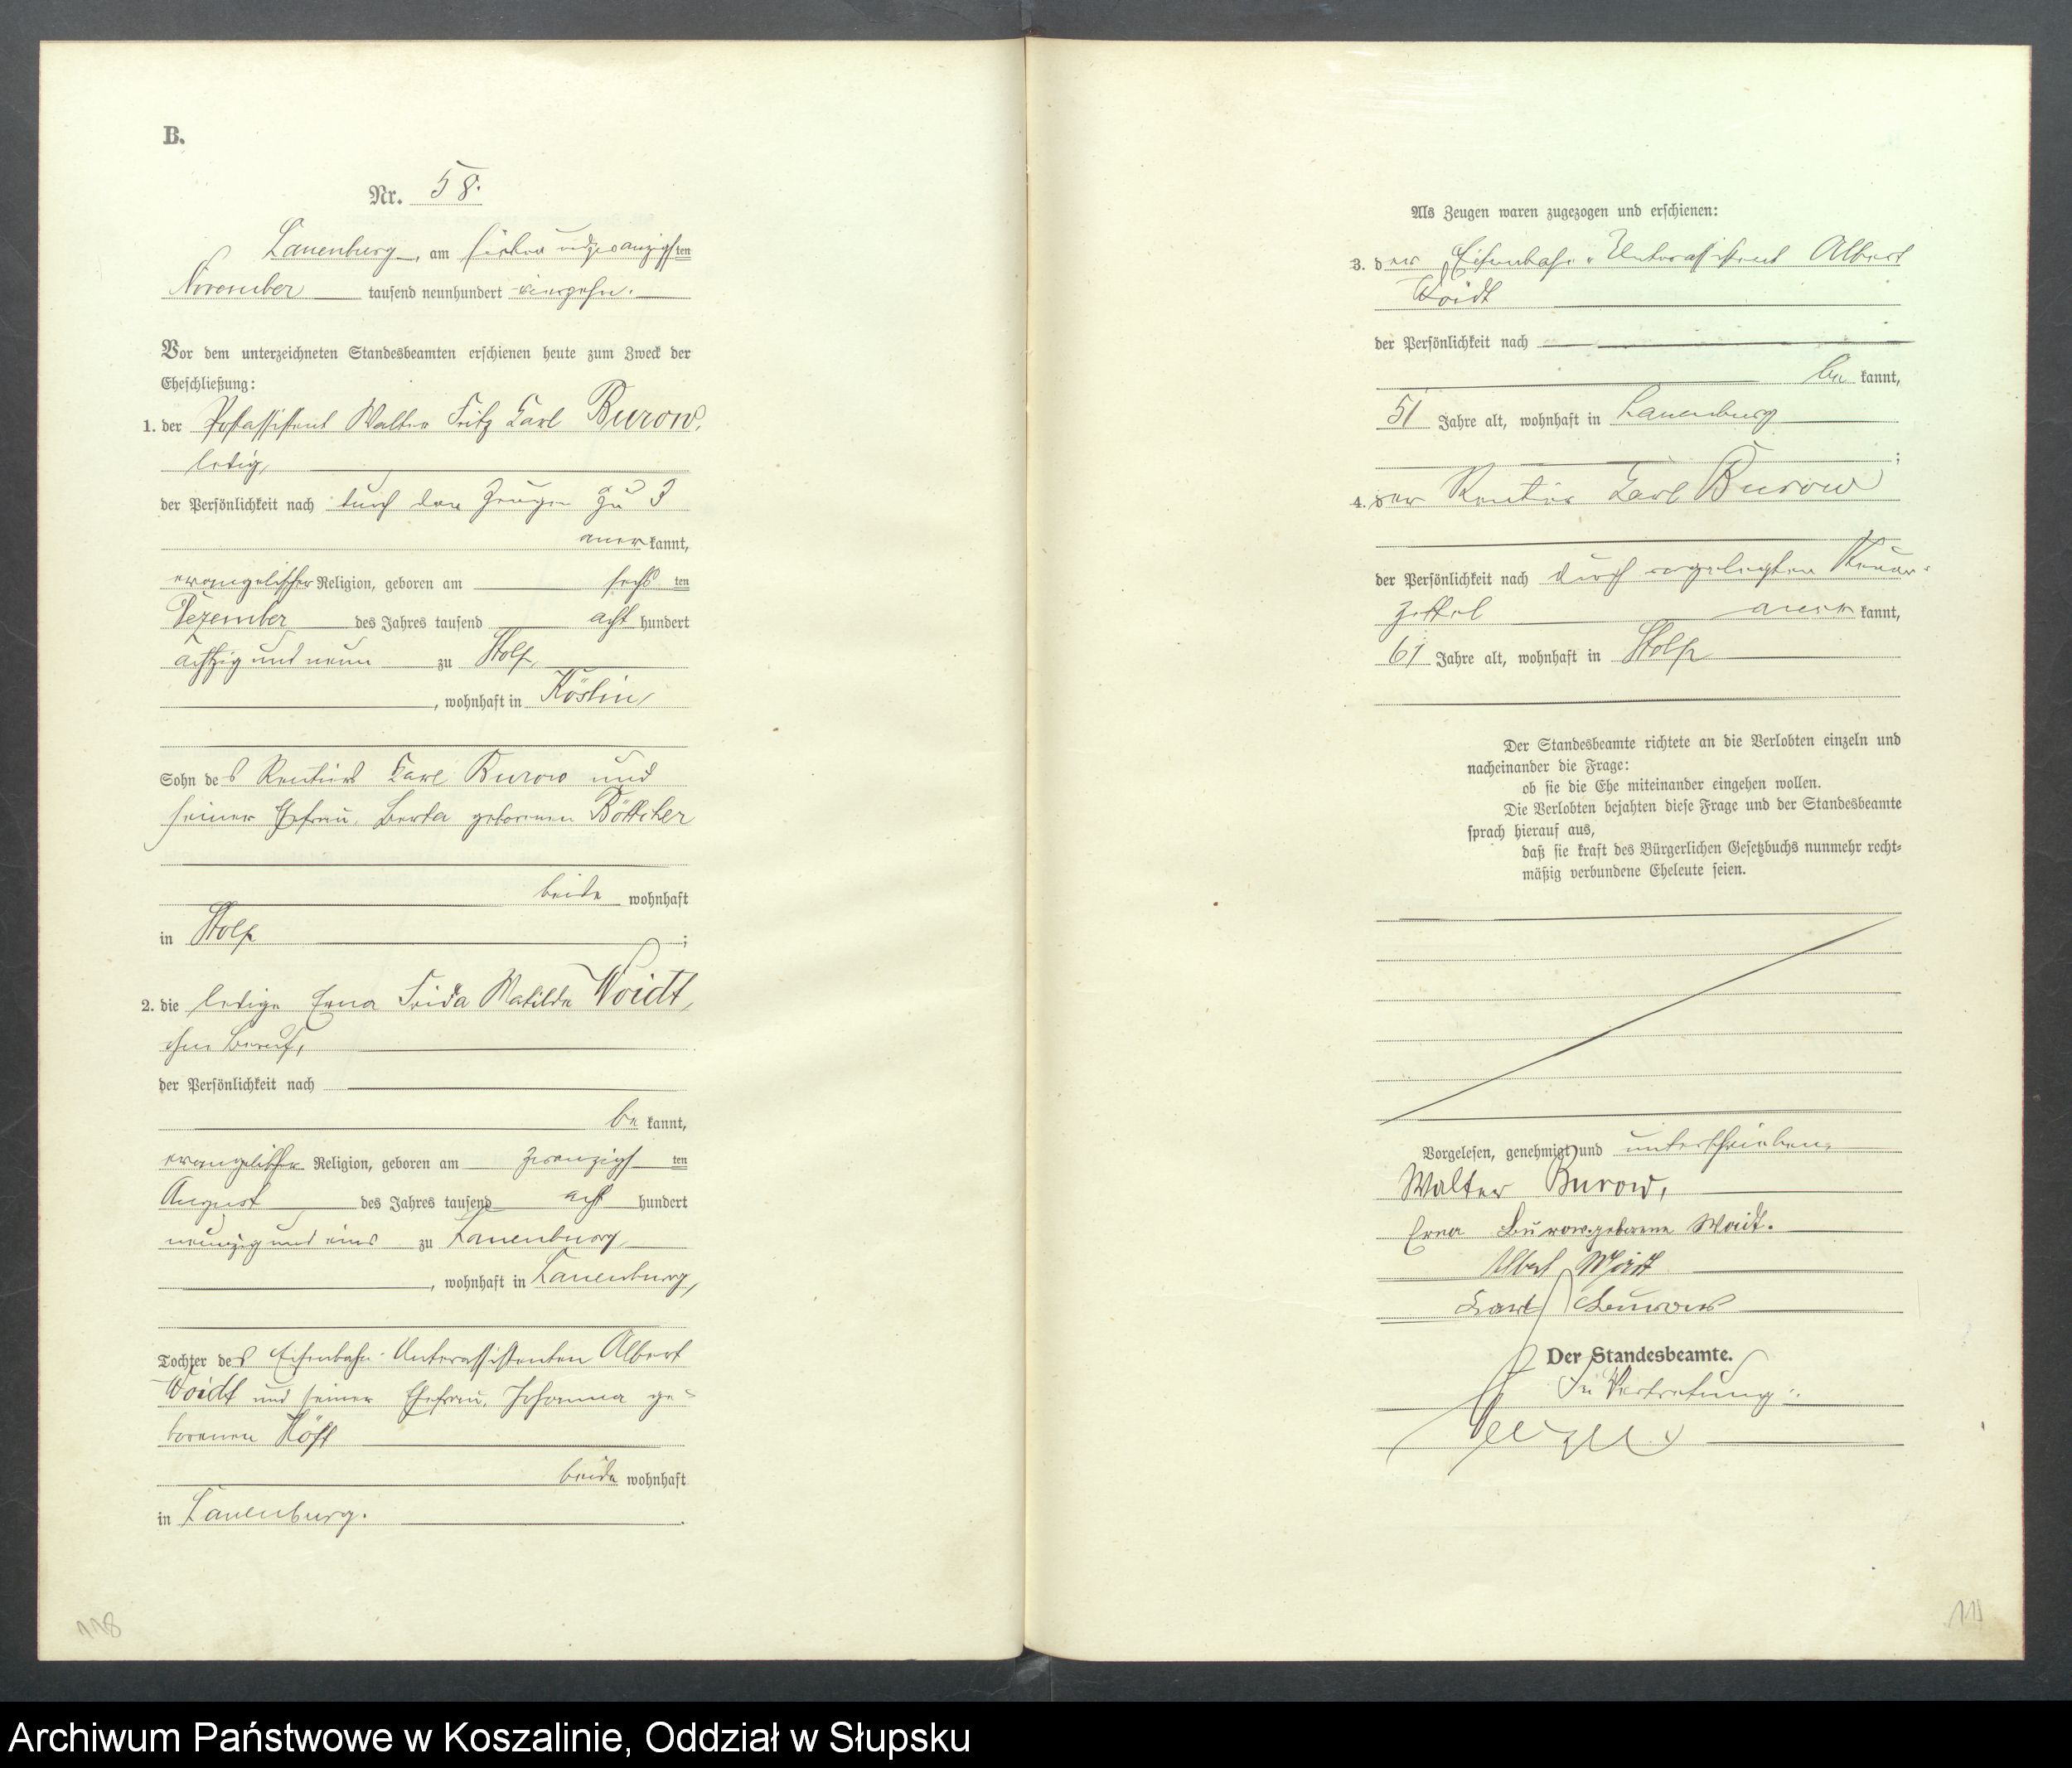 B.
Nr. 58.
Lauenburg, am sieben undzwanzigsten
November tausend neunhundert vierzehn.
Vor dem unterzeichneten Standesbeamten erschienen heute zum Zweck der
Eheschließung:
1. der Postassistent Walter Fritz Karl Burow,
ledig,
der Persönlichkeit nach durch den Zeugen zu 3
anerkannt,
evangelischer Religion, geboren am sechsten
Dezember des Jahres tausend acht hundert
achtzig und neun zu Stolp,
, wohnhaft in Köslin,
Sohn des Rentiers Karl Burow und
seiner Ehefrau, Berta geborenen Böttcher
beide wohnhaft
in Stolp ;
2. die ledige Erna Frida Matilde Voidt,
ohne Beruf,
der Persönlichkeit nach
bekannt,
evangelischer Religion, geboren am zwanzigsten
August des Jahres tausend acht hundert
neunzig und eins zu Lauenburg,
, wohnhaft in Lauenburg,
Tochter des Eisenbahn-Unterassistenten Albert
Voidt und seiner Ehefrau, Johanna ge-
borenen Höft
beide wohnhaft
in Lauenburg.
118
Als Zeugen waren zugezogen und erschienen:
3. der Eisenbahn-Unterassistent Albert
Voidt
der Persönlichkeit nach
bekannt,
51 Jahre alt, wohnhaft in Lauenburg
;
4. der Rentier Karl Burow
der Persönlichkeit nach durch vorgelegten Steuer-
zettel anerkannt,
61 Jahre alt, wohnhaft in Stolp
Der Standesbeamte richtete an die Verlobten einzeln und
nacheinander die Frage:
ob sie die Ehe miteinander eingehen wollen.
Die Verlobten bejahten diese Frage und der Standesbeamte
sprach hierauf aus,
daß sie kraft des Bürgerlichen Gesetzbuchs nunmehr recht-
mäßig verbundene Eheleute seien.
Vorgelesen, genehmigt und unterschrieben.
Walter Burow,
Erna Burow geborene Woidt.
Albert Woidt
Karl Burow
Der Standesbeamte.
In Vertretung:
Archiwum Państwowe w Koszalinie, Oddział w Słupsku